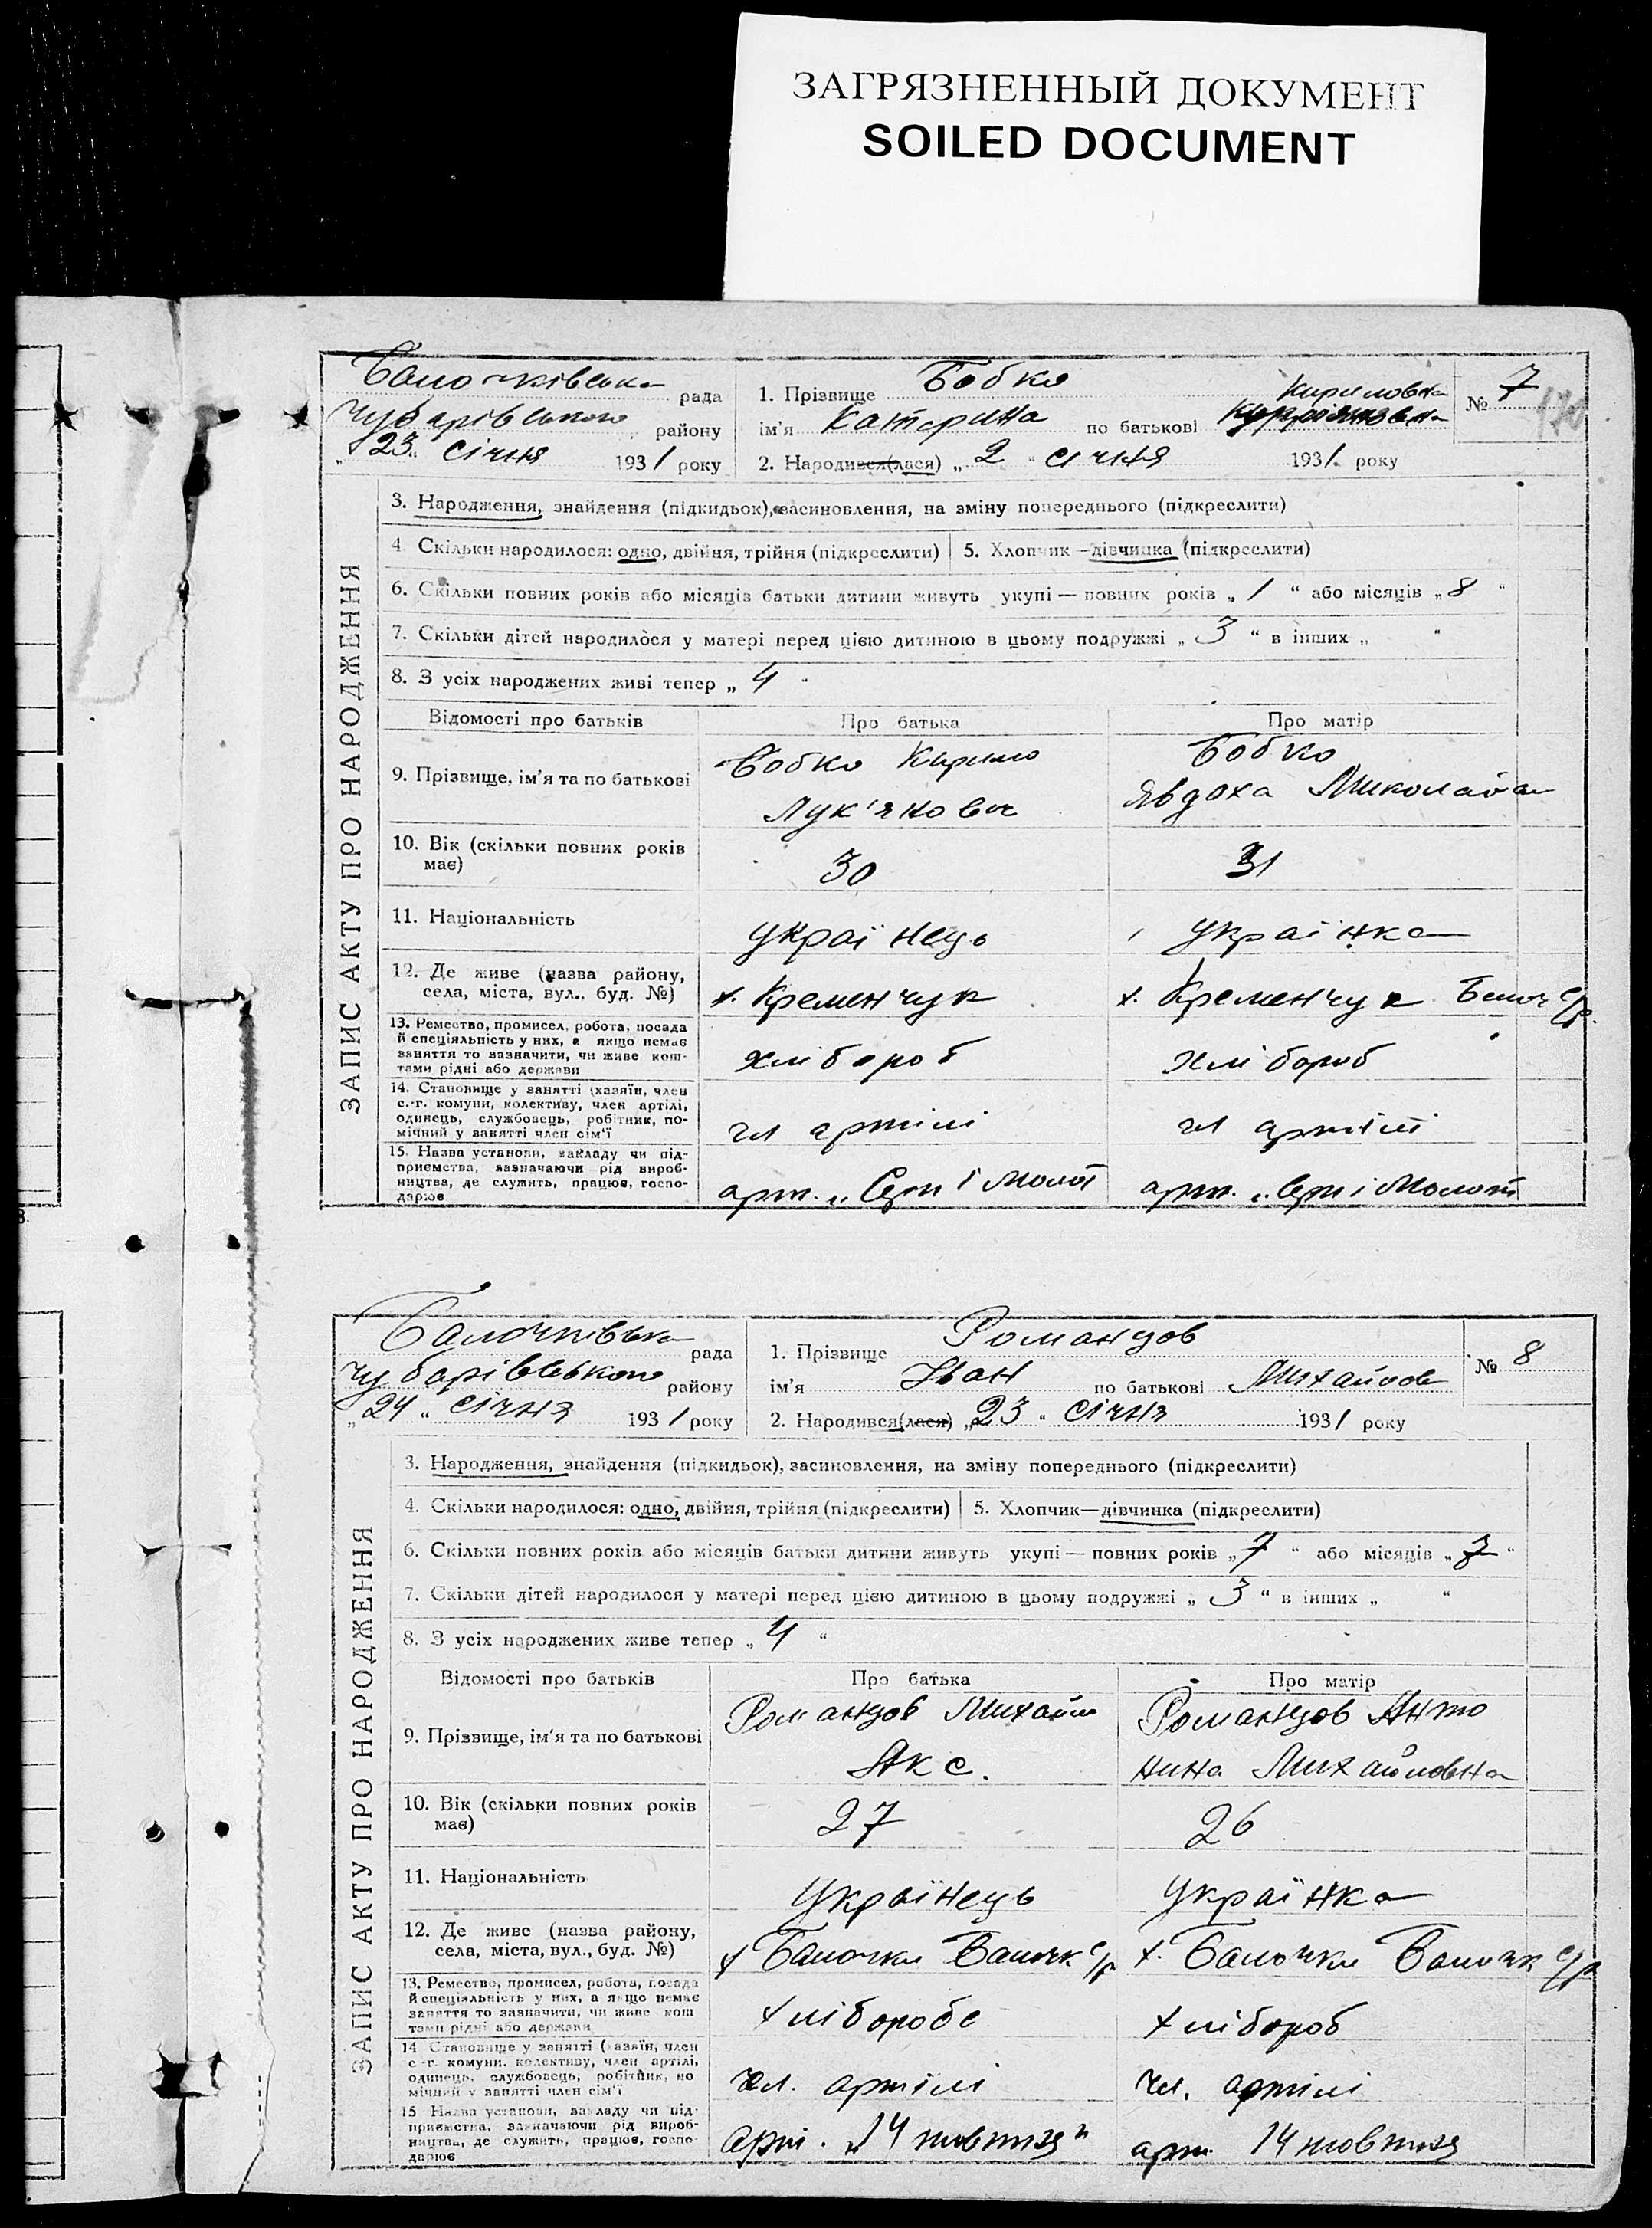 ЗАГРЯЗНЕННЫЙ ДОКУМЕНТ
SOILED DOCUMENT
ЗАПИС АКТУ ПРО НАРОДЖЕННЯ
Балочківська рада
Чубарівського району
„23“ січня 1931 року
1. Прізвище Бобко
Кириловна
ім'я Катерина по батькові
2. Народився(лася) „2“ січня 1931 року
№ 7
3. Народження, знайдення (підкидьок), засиновлення, на зміну попереднього (підкреслити)
4. Скільки народилося: одно, двійня, трійня (підкреслити) 5. Хлопчик—дівчинка (підкреслити)
6. Скільки повних років або місяців батьки дитини живуть укупі — повних років „1“ або місяців „8“
7. Скільки дітей народилося у матері перед цією дитиною в цьому подружжі „3“ в інших „ “
8. З усіх народжених живі тепер „4“
Відомості про батьків Про батька Про матір
9. Прізвище, ім'я та по батькові
Бобко Кирило
Лук'янович
Бобко
Явдоха Миколаївна
10. Вік (скільки повних років
має)
30 31
11. Національність українець українка
12. Де живе (назва району,
села, міста, вул., буд. №)
х. Кременчук х. Кременчук Балоч с/р.
13. Ремество, промисел, робота, посада
й спеціяльність у них, а якщо немає
заняття то зазначити, чи живе кош-
тами рідні або держави
хлібороб хлібороб
14. Становище у занятті (хазяїн, член
с.-г. комуни, колективу, член артілі,
одинець, службовець, робітник, по-
мічний у занятті член сім'ї
чл артілі чл артілі
15. Назва установи, закладу чи під-
приємства, зазначаючи рід вироб-
ництва, де служить, працює, госпо-
дарює
арт. „Серп і Молот арт. „Серп і Молот
ЗАПИС АКТУ ПРО НАРОДЖЕННЯ
Балочківська рада
Чубарівського району
„24“ січня 1931 року
1. Прізвище Романцов
ім'я Іван по батькові Михайлов
2. Народився(лася) „23“ січня 1931 року
№ 8
3. Народження, знайдення (підкидьок), засиновлення, на зміну попереднього (підкреслити)
4. Скільки народилося: одно, двійня, трійня (підкреслити) 5. Хлопчик—дівчинка (підкреслити)
6. Скільки повних років або місяців батьки дитини живуть укупі — повних років „7“ або місяців „7“
7. Скільки дітей народилося у матері перед цією дитиною в цьому подружжі „3“ в інших „ “
8. З усіх народжених живе тепер „4“
Відомості про батьків Про батька Про матір
9. Прізвище, ім'я та по батькові
Романцов Михайло
Якс.
Романцов Анто
нина Михайловна
10. Вік (скільки повних років
має)
27 26
11. Національність Українець Українка
12. Де живе (назва району,
села, міста, вул., буд. №)
х Балочки Балочк с/р х. Балочки Балочк с/р
13. Ремество, промисел, робота, посада
й спеціяльність у них, а якщо немає
заняття то зазначити, чи живе кош
тами рідні або держави
хліборобс хлібороб
14 Становище у занятті (хазяїн, член
с-г. комуни, колективу, член артілі,
одинець, службовець, робітник, по
мічний у занятті член сім'ї
чл. артілі чл. артілі
15 Назва установи, закладу чи під-
приємства, зазначаючи рід вироб-
ництва, де служить, працює, госпо-
дарює
арт. „14 жовтня" арт. 14 жовтня